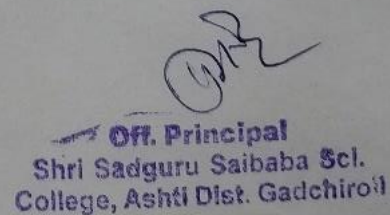 Off. Principal
Shri Sadguru Saibaba Sci.
College, Ashti Dist. Gadchiroli